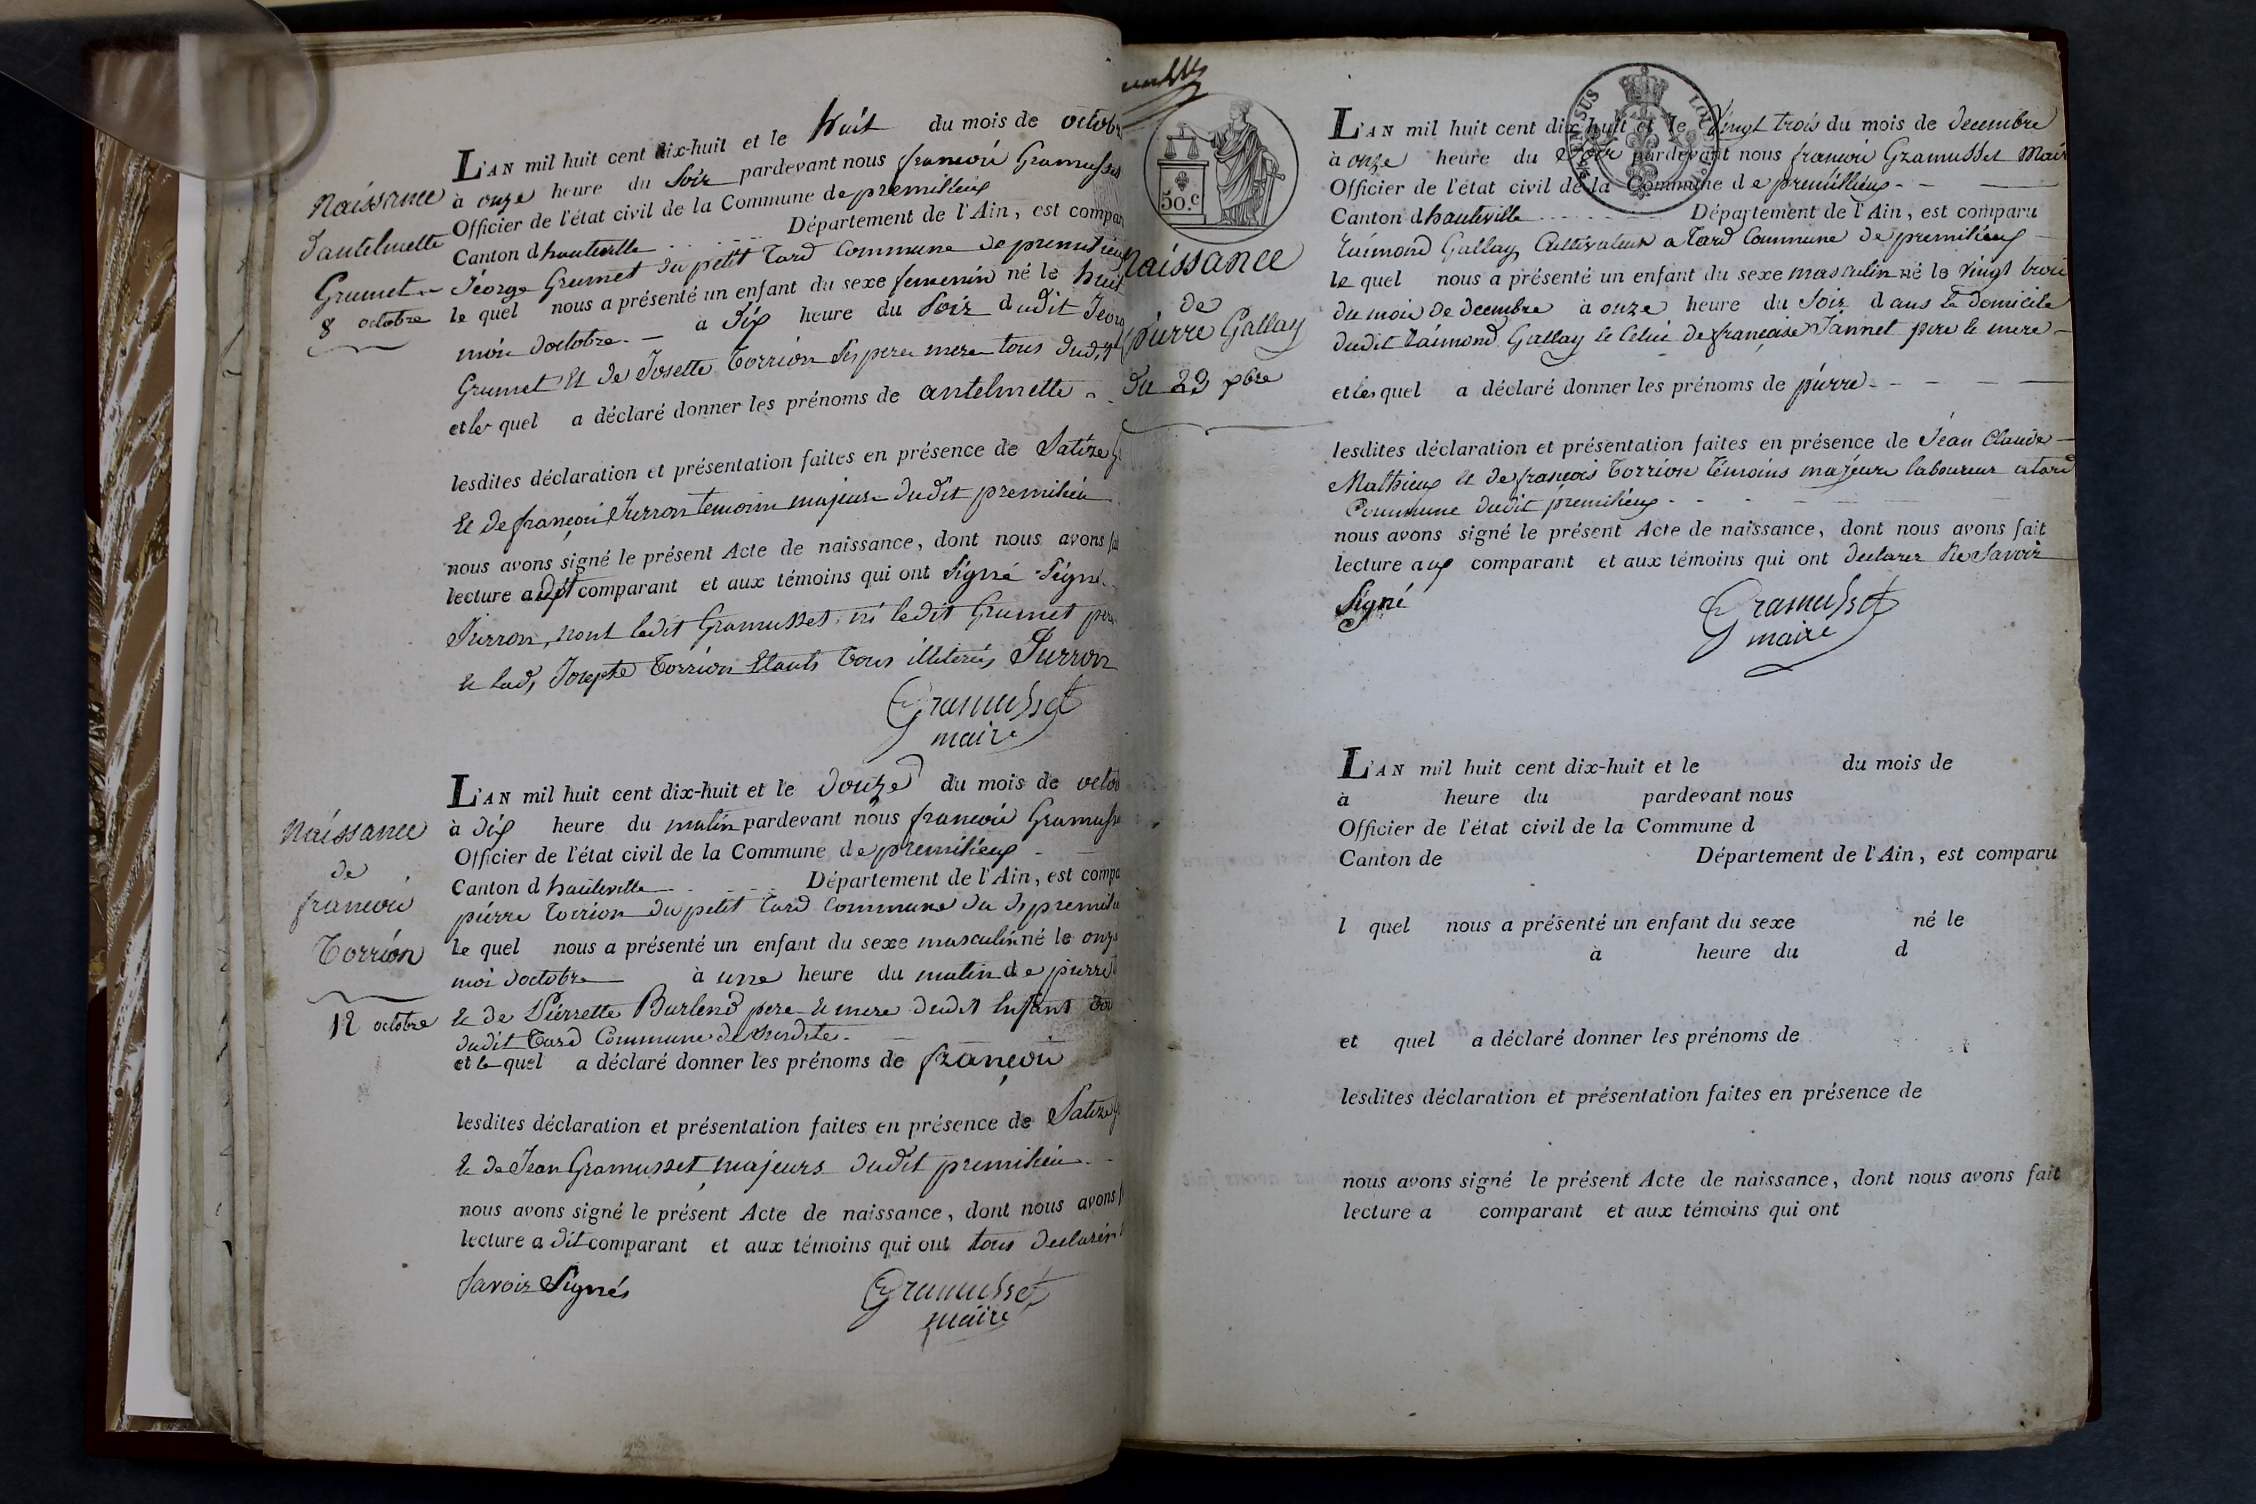 Naissance
dantelmette
Grumet
8 octobre
L'AN mil huit cent dix-huit et le huit du mois de octob
à onze heure du soir pardevant nous francois Gramusset
Officier de l'état civil de la Commune de premillieux
Canton d hauteville Département de l'Ain, est compar
George Grumet du petit Tard Commune de premilieux
le quel nous a présenté un enfant du sexe femenin né le huit
mois doctobre à dix heure du soir dudit Georg
Grumet et de Josette Torrion ses pere mere tous dudit
et le quel a déclaré donner les prénoms de antelmette
lesdites déclaration et présentation faites en présence de
et de françois Jurron temoins majeur dudit premilieu
nous avons signé le présent Acte de naissance, dont nous avons fai
lecture audit comparant et aux témoins qui ont signé signé
Jurron, non ledit Gramusset, ni ledit Grumet pere
et lad, Josepte Torrion Etants tous illiterés Jurron
Gramusset
maire
Naissance
de
francois
Torrion
12 octobre
L'AN mil huit cent dix-huit et le douze du mois de octob
à dix heure du matin pardevant nous francois Gramuss
Officier de l'état civil de la Commune de premilieux
Canton d hauteville Département de l'Ain, est compa
pierre Torrion du petit Tard Commune du d, premilie
le quel nous a présenté un enfant du sexe masculin né le onze
moi doctobre à une heure du matin de pierre
et de Pierrette Burlend pere et mere dudit Enfant tou
dudit Tard Commune de susdite
et le quel a déclaré donner les prénoms de françois
lesdites déclaration et présentation faites en présence de
et de Jean Gramusset, majeurs dudit premilieu
nous avons signé le présent Acte de naissance, dont nous avons f
lecture a dit comparant et aux témoins qui ont tous declarér
savoir signés
Gramusset
maire
50.c
Naissance
de
pierre Gallay
du 23 xbre
L'AN mil huit cent dix-huit et le vingt trois du mois de decembre
à onze heure du soir pardevant nous francois Gramusset Mair
Officier de l'état civil de la Commune de premillieux
Canton d hauteville Département de l'Ain, est comparu
Raimond Gallay Cultivateur a Tard Commune de premilieux
le quel nous a présenté un enfant du sexe masculin né le vingt trois
du mois de decembre à onze heure du soir dans le domicile
dudit Raimond Gallay et celui de française Jannet pere et mere
et les quel a déclaré donner les prénoms de pierre
lesdites déclaration et présentation faites en présence de Jean Claude
Mathieux et de françois Torrion témoins majeurs laboureur a tard
Commune dudit premilieux
nous avons signé le présent Acte de naissance, dont nous avons fait
lecture aux comparant et aux témoins qui ont declarer ne savoir
signé
Gramusset
maire
L'AN mil huit cent dix-huit et le du mois de
à heure du pardevant nous
Officier de l'état civil de la Commune d
Canton de Département de l'Ain, est comparu
l quel nous a présenté un enfant du sexe né le
à heure du d
et quel a déclaré donner les prénoms de
lesdites déclaration et présentation faites en présence de
nous avons signé le présent Acte de naissance, dont nous avons fait
lecture a comparant et aux témoins qui ont